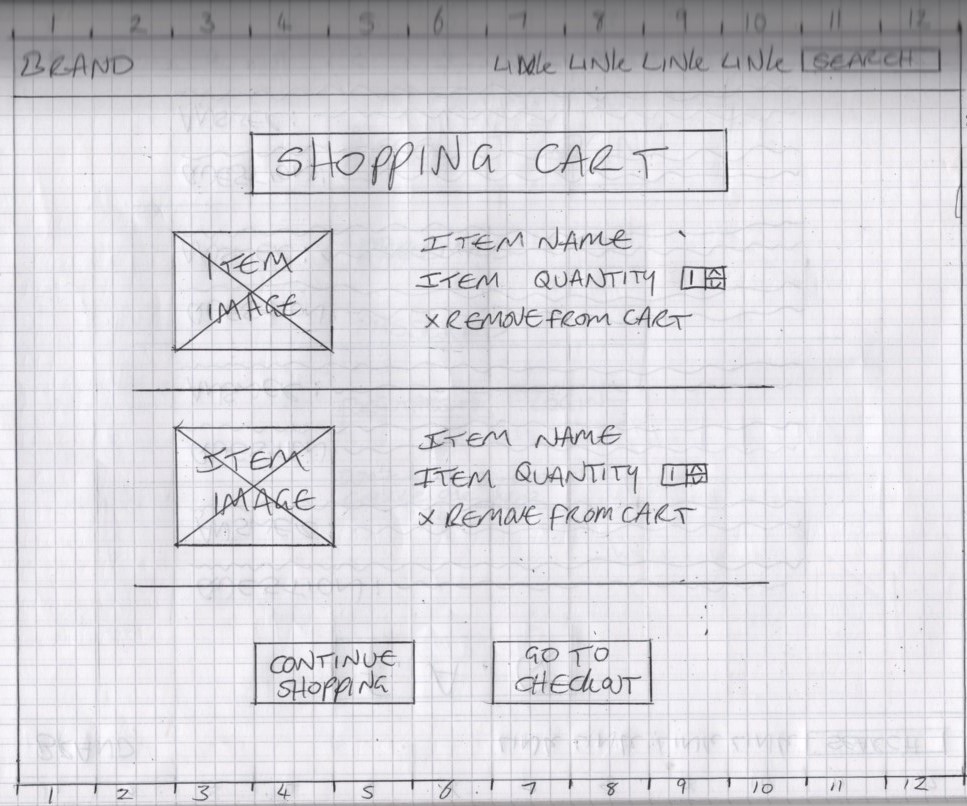 1 2 3 4 5 6 7 8 9 10 11 12
BRAND LINK LINK LINK LINK SEARCH
SHOPPING CART
ITEM
IMAGE
ITEM NAME
ITEM QUANTITY 1
X REMOVE FROM CART
ITEM
IMAGE
ITEM NAME
ITEM QUANTITY 1
X REMOVE FROM CART
CONTINUE
SHOPPING
GO TO
CHECKOUT
1 2 3 4 5 6 7 8 9 10 11 12